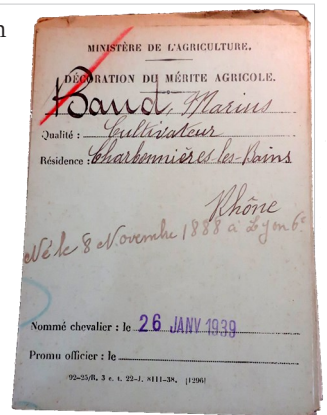 n
MINISTÈRE DE L'AGRICULTURE.
DÉCORATION DU MÉRITE AGRICOLE.
Baud, Marius
Qualité : Cultivateur
Résidence : Charbonnières-les-Bains
Rhône
Né le 8 Novembre 1888 à Lyon 6e
Nommé chevalier : le 26 JANV 1939
Promu officier : le
92-25/R. 3 c. t. 22-J. 8111-38. [1296]